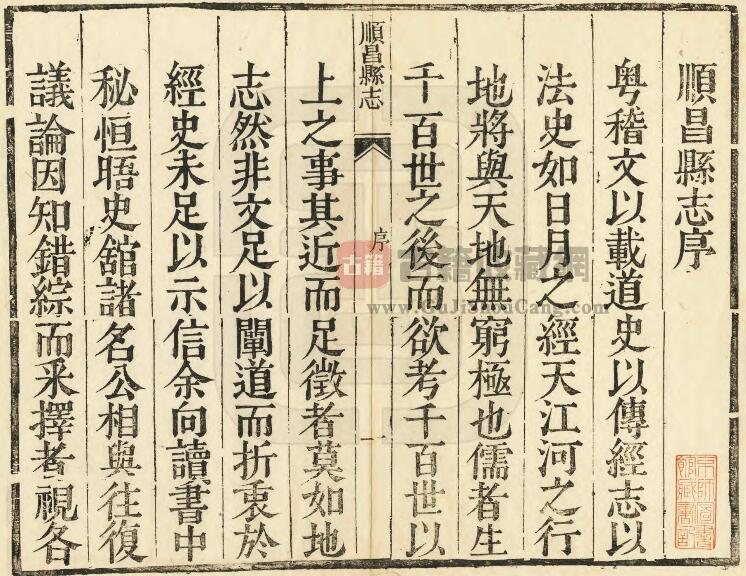 順昌縣志序
粵稽文以載道史以傳經志以
法史如日月之經天江河之行
地將與天地無窮極也儒者生
千百世之後而欲考千百世以
順昌縣志
序
一
上之事其近而足徵者莫如地
志然非文足以闡道而折衷於
經史未足以示信余向讀書中
秘恒晤史舘諸名公相與往復
議論因知錯綜而采擇者視各
古籍
www.GuJiShouCang.com